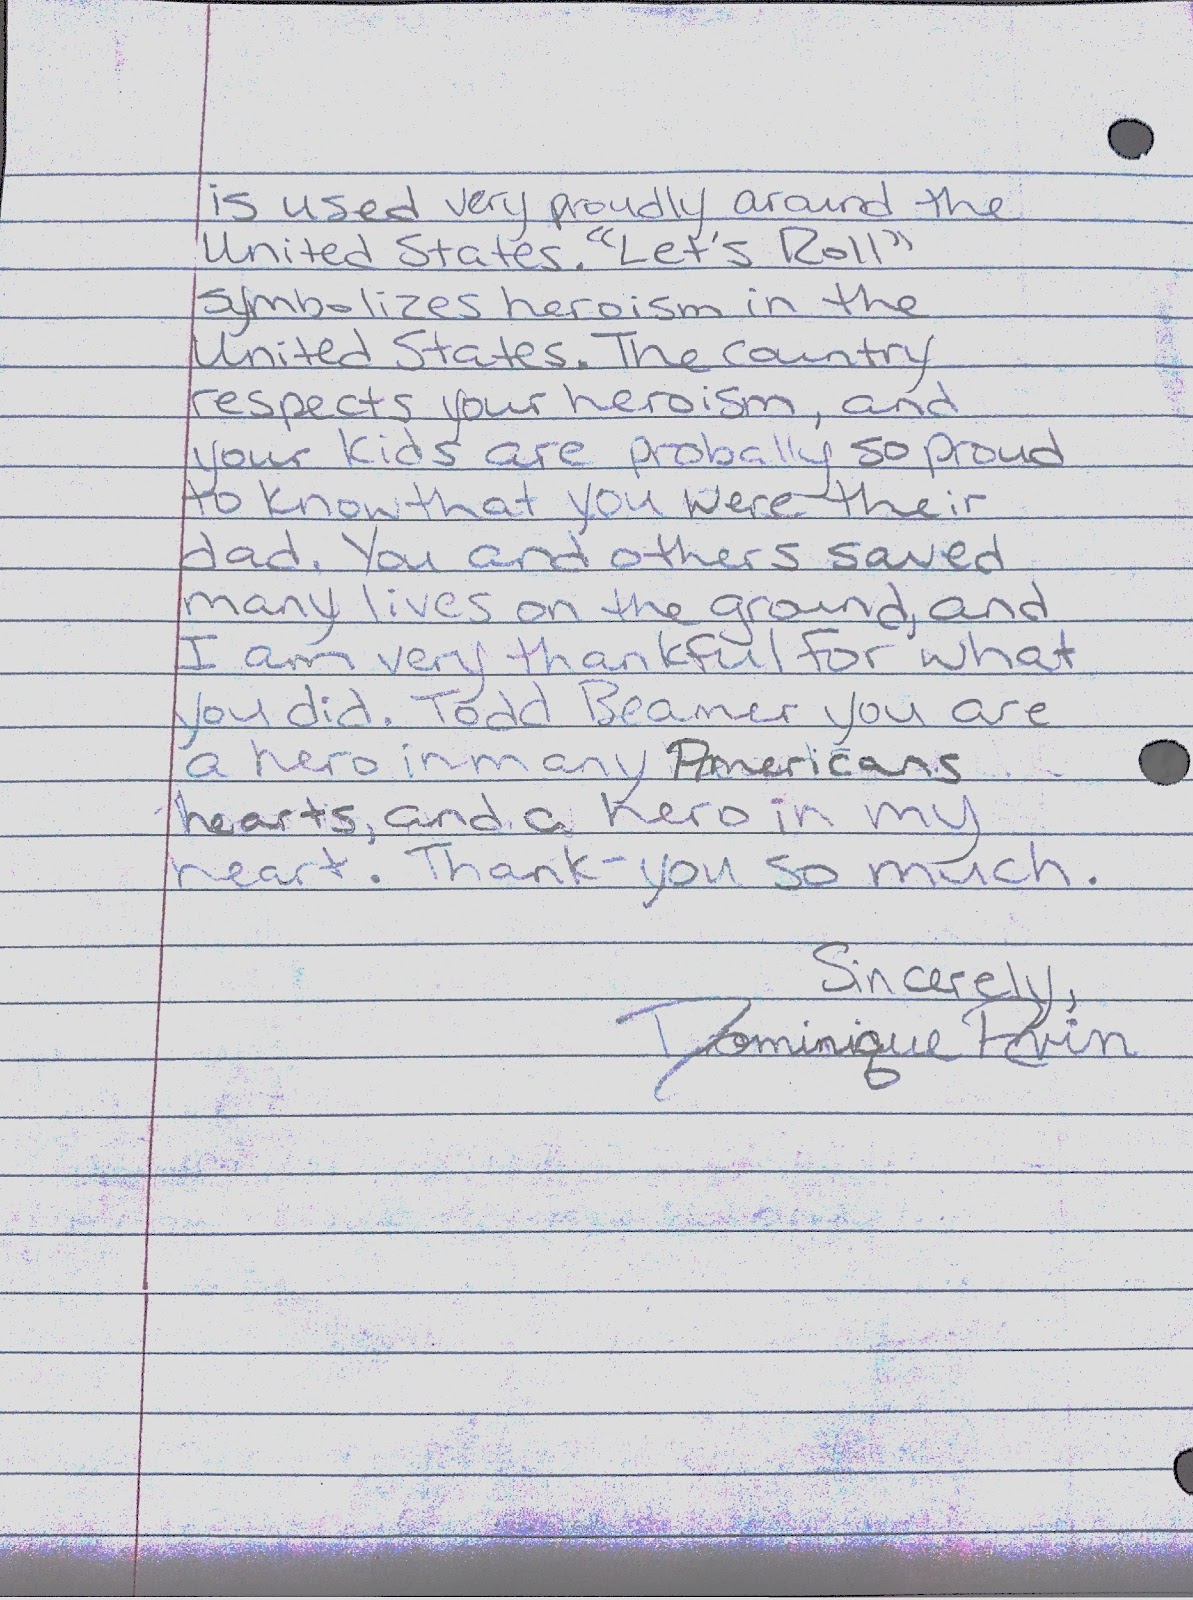 is used very proudly around the
United States. "Let's Roll"
symbolizes heroism in the
United States. The country
respects your heroism, and
your kids are probally so proud
to know that you were their
dad. You and others saved
many lives on the ground, and
I am very thankful for what
you did. Todd Beamer you are
a hero in many Americans
hearts, and a hero in my
heart. Thank-you so much.
Sincerely,
Dominique